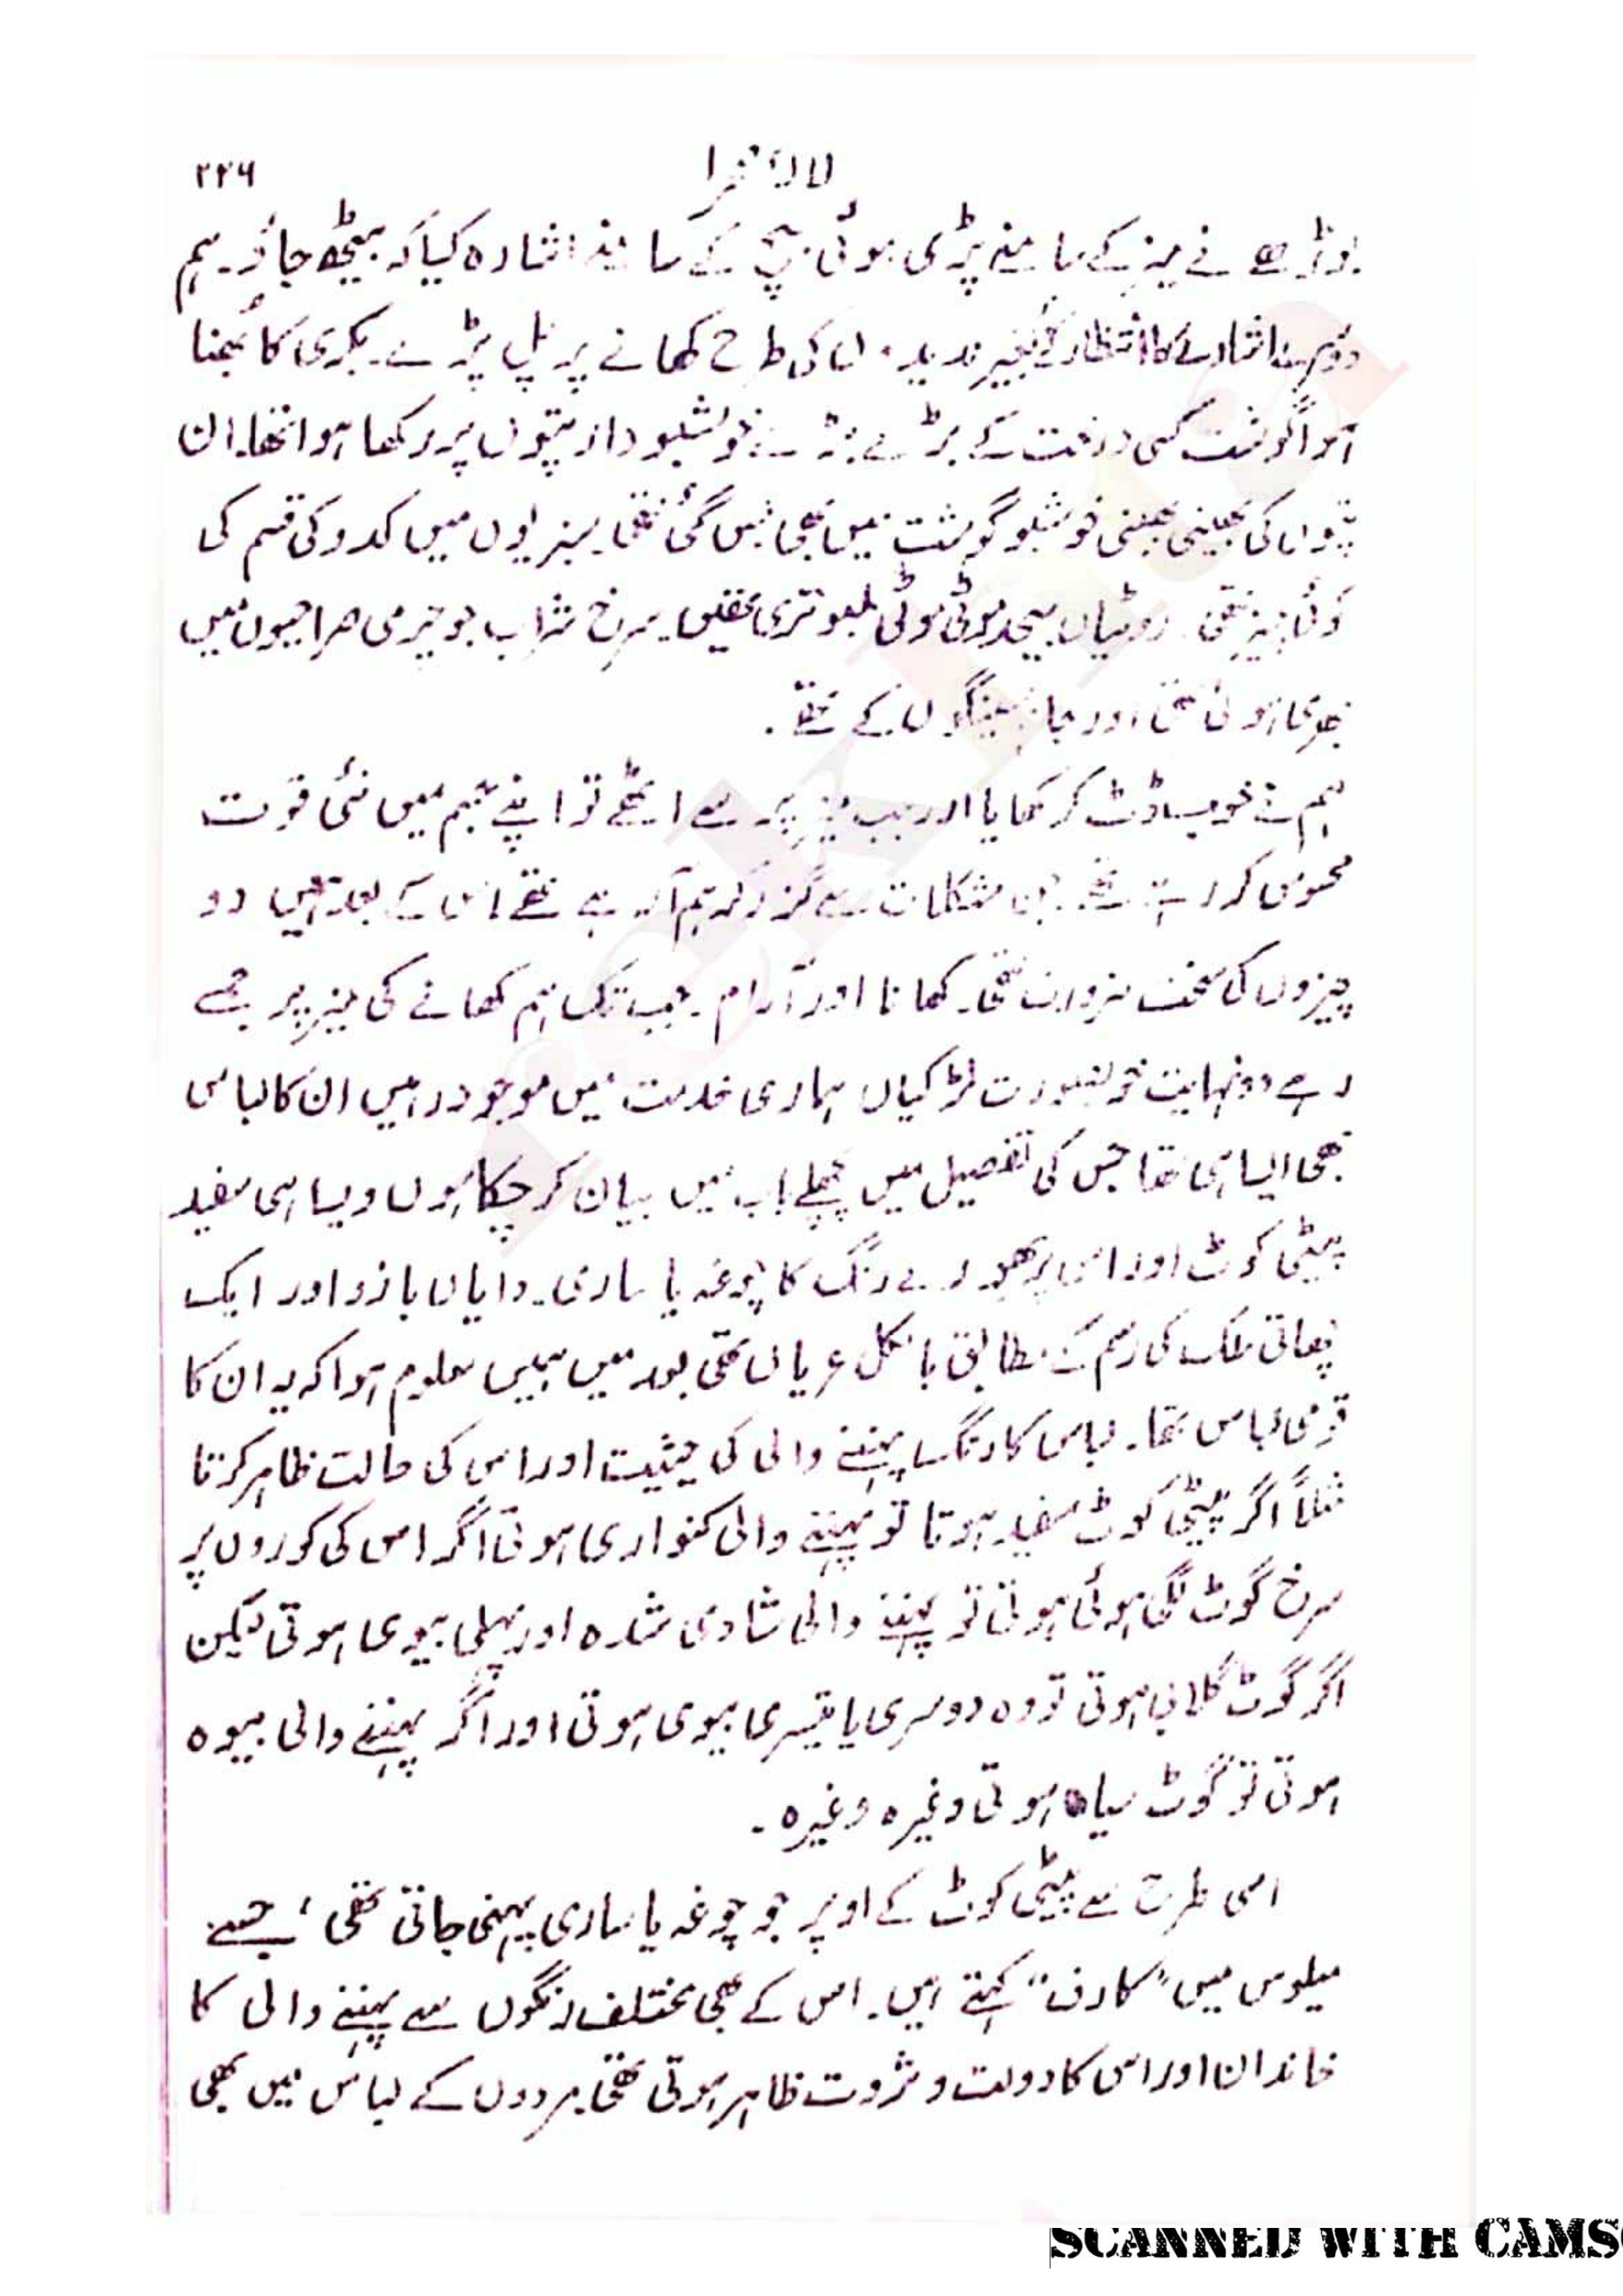 لالۂ صحرا ۲۲۶
بوڑھے نے میز کے سامنے پڑی ہوئی بنچ کے اشارہ کیا کہ بیٹھ جاؤ۔ ہم
دوسرے اشارے کا انتظار کئے بغیر کی طرح کھانے پر پل پڑے۔ بکری کا بھنا
ہوا گوشت کسی درخت کے بڑے بڑے خوشبودار پتوں پر رکھا ہوا تھا۔ ان
پتوں کی بھینی بھینی خوشبو گوشت میں بھی بس گئی تھی۔ سبزیوں میں کدو کی قسم کی
کوئی چیز تھی۔ روٹیاں بیحد موٹی موٹی لمبوتری تھیں۔ سرخ شراب جو چرمی صراحیوں میں
بھری ہوئی تھی اور جام سینگوں کے تھے۔
ہم نے خوب ڈٹ کر کھایا اور جب میز پر سے اٹھے تو اپنے جسم میں نئی قوت
محسوس کر رہے تھے۔ جن مشکلات سے گزر کر ہم آ رہے تھے اس کے بعد ہمیں دو
چیزوں کی سخت ضرورت تھی۔ کھانا اور آرام۔ جب تک ہم کھانے کی میز پر جمے
رہے دو نہایت خوبصورت لڑکیاں ہماری خدمت میں موجود رہیں ان کا لباس
بھی ایسا ہی تھا جس کی تفصیل میں پچھلے باب میں بیان کر چکا ہوں ویسا ہی سفید
پیٹی کوٹ اور اس پر بھورے رنگ کا چوغہ یا ساری۔ دایاں بازو اور ایک
چھاتی ملک کی رسم کے مطابق بالکل عریاں تھی بعد میں ہمیں معلوم ہوا کہ یہ ان کا
قومی لباس تھا۔ لباس کا رنگ پہننے والی کی حیثیت اور اس کی حالت ظاہر کرتا
مثلاً اگر پیٹی کوٹ سفید ہوتا تو پہننے والی کنواری ہوتی اگر اس کی کوروں پر
سرخ گوٹ لگی ہوئی ہوتی تو پہننے والی شادی شدہ اور پہلی بیوی ہوتی لیکن
اگر گوٹ گلابی ہوتی تو وہ دوسری یا تیسری بیوی ہوتی اور اگر پہننے والی بیوہ
ہوتی تو گوٹ سیاہ ہوتی وغیرہ وغیرہ۔
اسی طرح سے پیٹی کوٹ کے اوپر جو چوغہ یا ساری پہنی جاتی تھی، جسے
میلوس میں "کارف" کہتے ہیں۔ اس کے بھی مختلف رنگوں سے پہننے والی کا
خاندان اور اس کا دولت و ثروت ظاہر ہوتی تھی۔ مردوں کے لباس میں بھی
SCANNED WITH CAMS